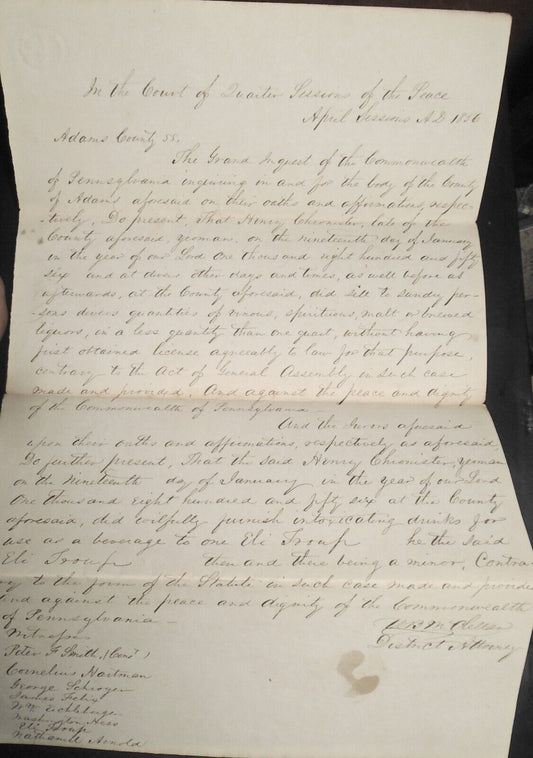 In the Court of Quarter Sessions of the Peace
April Sessions A.D. 1856
Adams County SS.
The Grand Inquest of the Commonwealth
of Pennsylvania inquiring in and for the body of the County
of Adams aforesaid on their oaths and affirmations, respec-
tively, Do present, That Henry Chronister, late of the
County aforesaid, yeoman, on the nineteenth day of January
in the year of our Lord one thousand eight hundred and fifty
six and at divers other days and times, as well before as
afterwards, at the County aforesaid, did sell to sundry per-
sons divers quantities of vinous, spirituous, malt or brewed
liquors, in a less quantity than one quart, without having
first obtained license agreeably to law for that purpose,
contrary to the Act of General Assembly in such case
made and provided, And against the peace and dignity
of the Commonwealth of Pennsylvania -
And the Jurors aforesaid
upon their oaths and affirmations, respectively, as aforesaid,
Do further present, That the said Henry Chronister, yeoman
on the nineteenth day of January in the year of our Lord
One thousand eight hundred and fifty six at the County
aforesaid, did wilfully furnish intoxicating drinks for
use as a beverage to one Eli Troup he the said
Eli Troup then and there being a minor, Contra-
ry to the form of the Statute in such case made and provided
And against the peace and dignity of the Commonwealth
of Pennsylvania -
District Attorney
Witnesses
Peter F Smith, (Cont)
Cornelius Hartman
George Schroyer
James
Wm
Washington Hess
Eli Troup
Nathaniel Arnold